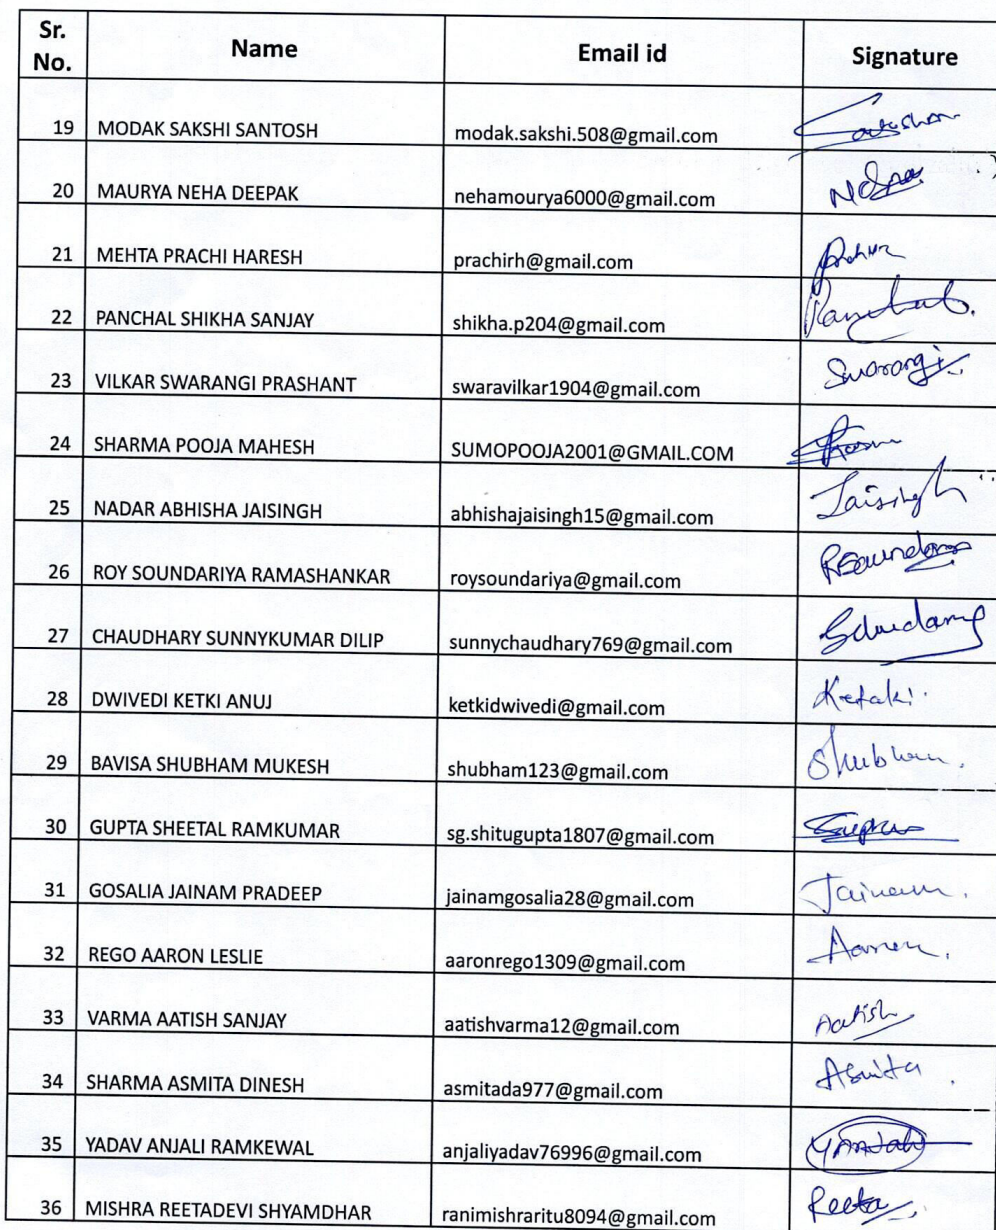 Sr. No. Name Email id Signature
19 MODAK SAKSHI SANTOSH modak.sakshi.508@gmail.com
20 MAURYA NEHA DEEPAK nehamourya6000@gmail.com Neha
21 MEHTA PRACHI HARESH prachirh@gmail.com
22 PANCHAL SHIKHA SANJAY shikha.p204@gmail.com Panchal.
23 VILKAR SWARANGI PRASHANT swaravilkar1904@gmail.com Swarangi
24 SHARMA POOJA MAHESH SUMOPOOJA2001@GMAIL.COM
25 NADAR ABHISHA JAISINGH abhishajaisingh15@gmail.com Jaisingh
26 ROY SOUNDARIYA RAMASHANKAR roysoundariya@gmail.com
27 CHAUDHARY SUNNYKUMAR DILIP sunnychaudhary769@gmail.com
28 DWIVEDI KETKI ANUJ ketkidwivedi@gmail.com Ketaki.
29 BAVISA SHUBHAM MUKESH shubham123@gmail.com Shubham.
30 GUPTA SHEETAL RAMKUMAR sg.shitugupta1807@gmail.com
31 GOSALIA JAINAM PRADEEP jainamgosalia28@gmail.com Jainam.
32 REGO AARON LESLIE aaronrego1309@gmail.com Aaron.
33 VARMA AATISH SANJAY aatishvarma12@gmail.com Aatish
34 SHARMA ASMITA DINESH asmitada977@gmail.com Asmita
35 YADAV ANJALI RAMKEWAL anjaliyadav76996@gmail.com
36 MISHRA REETADEVI SHYAMDHAR ranimishraritu8094@gmail.com Reeta